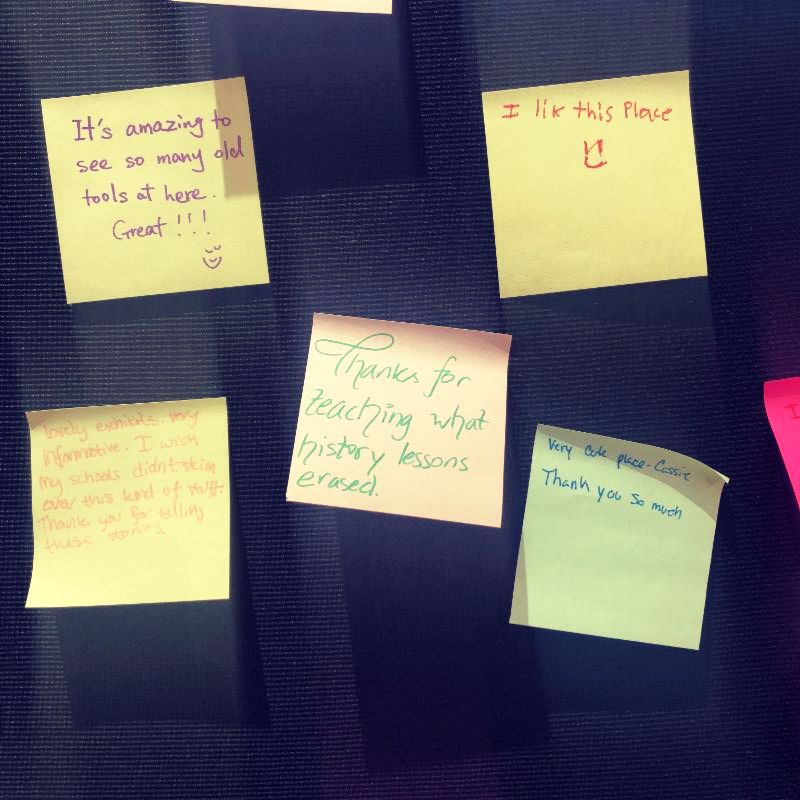 It's amazing to
see so many old
tools at here.
Great!!!
I lik this Place
Thanks for
teaching what
history lessons
erased.
lovely exhibits. very
informative. I wish
my schools didn't skim
over this kind of stuff.
Thank you for telling
these stories.
Very cute place-Cassie
Thank you so much
I